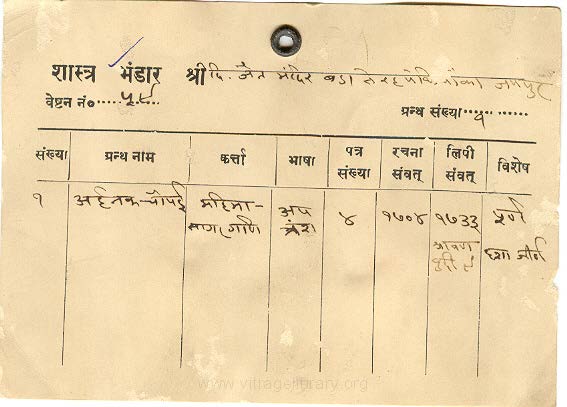 शास्त्र भंडार श्री दि. जैन मंदिर बड़ा तेरहपंथियों का जयपुर
वेष्टन नं०
ग्रन्थ संख्या १
संख्या ग्रन्थ नाम कर्त्ता भाषा पत्र संख्या रचना संवत् लिपी संवत् विशेष
१ अर्हनक चौपई महिमा- अप ४ १७०४ १७३३ पूर्ण
सागर गणि भ्रंश श्रावण दशा जीर्ण
www.vitragelibrary.org